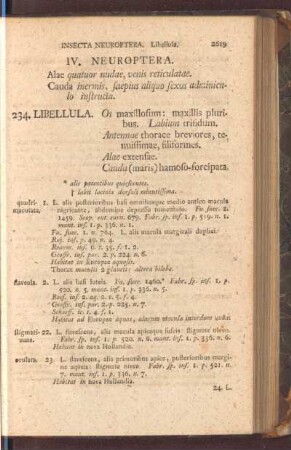 INSECTA NEUROPTERA. Libellula. 2619
IV. NEUROPTERA.
Alae quatuor nudae, venis reticulatae.
Cauda inermis, saepius aliquo sexus adminicu-
lo instructa.
234. LIBELLULA. Os maxillosum: maxillis pluri-
bus. Labium trifidum.
Antennae thorace breviores, te-
nuissimae, filiformes.
Alae extensae.
Cauda (maris) hamoso-forcipata.
* alis patentibus quiescentes.
† labii lacinia dorsali minutissima.
quadri- 1. L. alis posterioribus basi omnibusque medio antico macula
maculata. nigricante, abdomine depresso tomentoso. Fn. suec. 2.
1459. Scop. ent. carn. 679. Fabr. sp. ins. 1. p. 519. n. 1.
mant. ins. 1. p. 336. n. 1.
Fn. suec. 1. n. 764. L. alis macula marginali duplici.
Raj. ins. p. 49. n. 4.
Reaum. ins. 6. t. 35. f. 1. 2.
Geoffr. ins. par. 2. p. 224. n. 6.
Habitat in Europae aquosis.
Thorax
flaveola. 2. L. alis basi luteis. Fn. suec. 1460.* Fabr. sp. ins. 1. p.
520. n. 5. mant. ins. 1. p. 336. n. 5.
Roes. ins. 2. aq. 2. t. 5. f. 4.
Geoffr. ins. par. 2. p. 225. n. 7.
Habitat ad Europae aquas,
stigmati- 22. L. flavescens, alis macula apicaque fuscis: stigmate niveo.
zans. Fabr. sp. ins. 1. p. 520. n. 6. mant. ins. 1. p. 336. n. 6.
Habitat in nova Hollandia.
oculata. 23. L. flavescens, alis primoribus apice, posterioribus margi-
ne apicis: stigmate niveo. Fabr. sp. ins. 1. p. 521. n.
7. mant. ins. 1. p. 336. n. 7.
Habitat in nova Hollandia.
24. L.